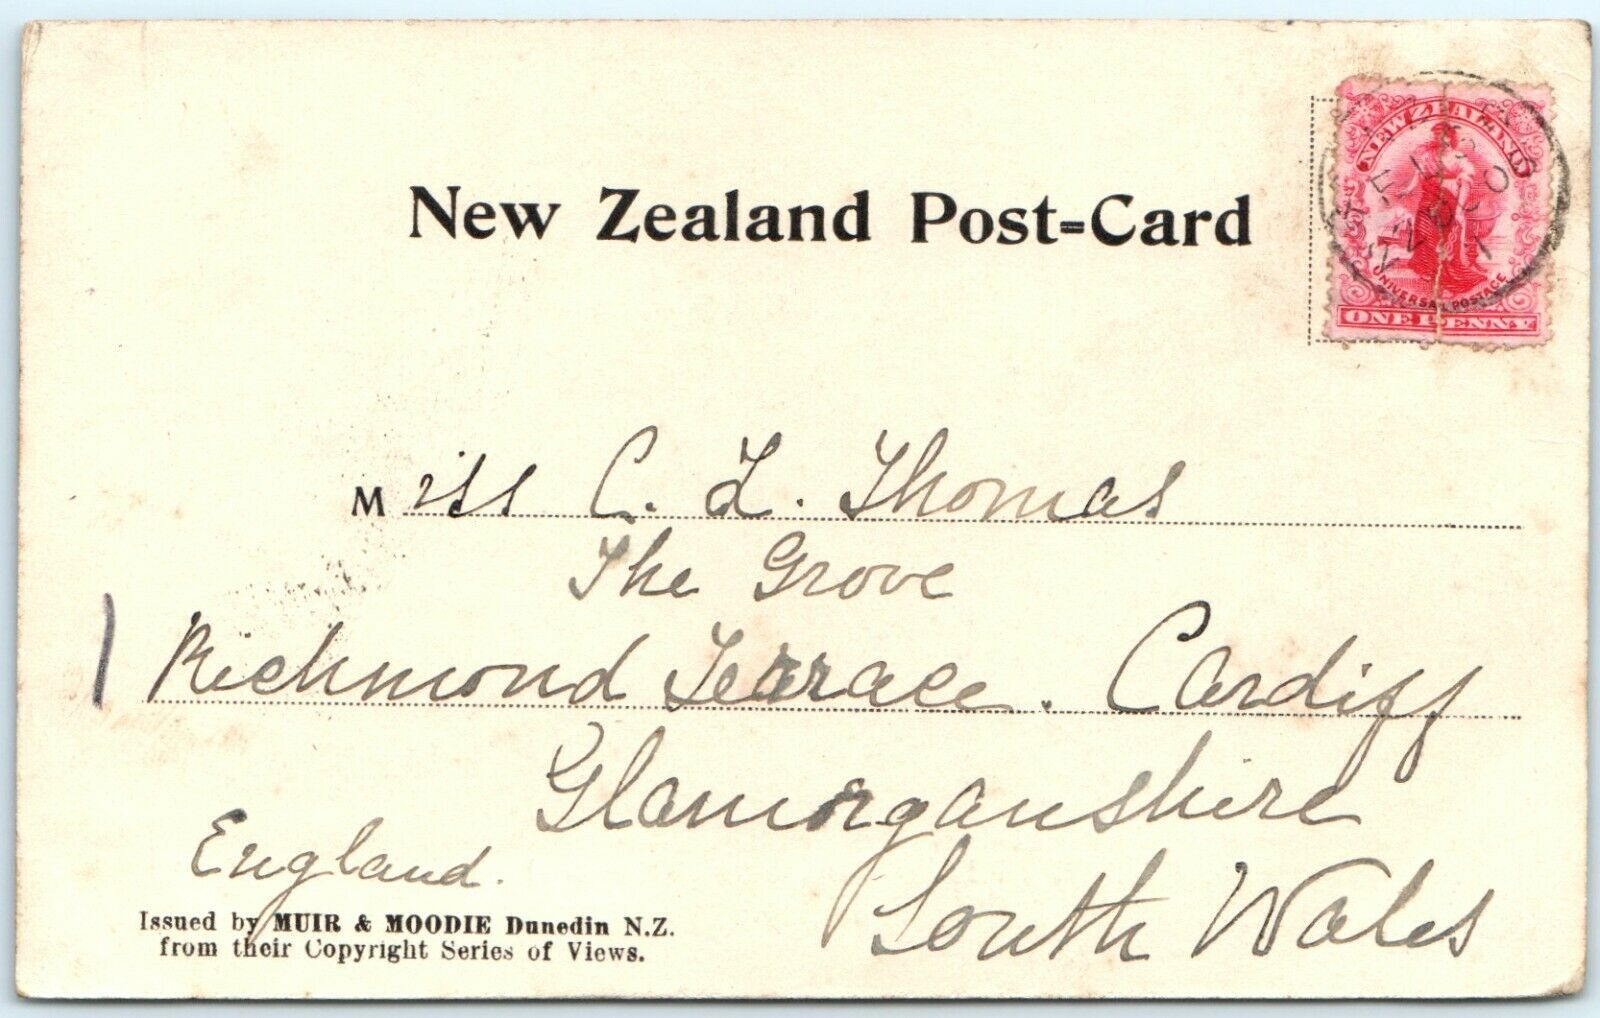 New Zealand Post=Card
NEW ZEALAND
UNIVERSAL POSTAGE
ONE PENNY
Miss C. L. Thomas
The Grove
Richmond Terrace. Cardiff
Glamorganshire
England.
South Wales
Issued by MUIR & MOODIE Dunedin N.Z.
from their Copyright Series of Views.